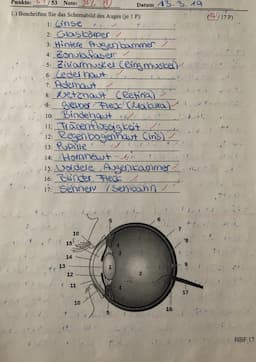 Punkte: /53 Note: Datum: 15.5.19
1.) Beschriften Sie das Schemabild des Auges (je 1 P) /17 P)
1: Linse
2: Glaskörper
3: Hintere Augenkammer
4: Zonulafaser
5: Ziliarmuskel (Ringmuskel)
6: Lederhaut
7: Aderhaut
8: Netzhaut (Retina)
9: Gelber Fleck (Makula)
10: Bindehaut
11: Tränenflüssigkeit
12: Regenbogenhaut (Iris)
13: Pupille
14: Hornhaut
15: Vordere Augenkammer
16: Blinder Fleck
17: Sehnerv / Sehbahn
5 6
10 7
15 4 8
14 3
13 1 2 9
12
11 4 17
10
5 16